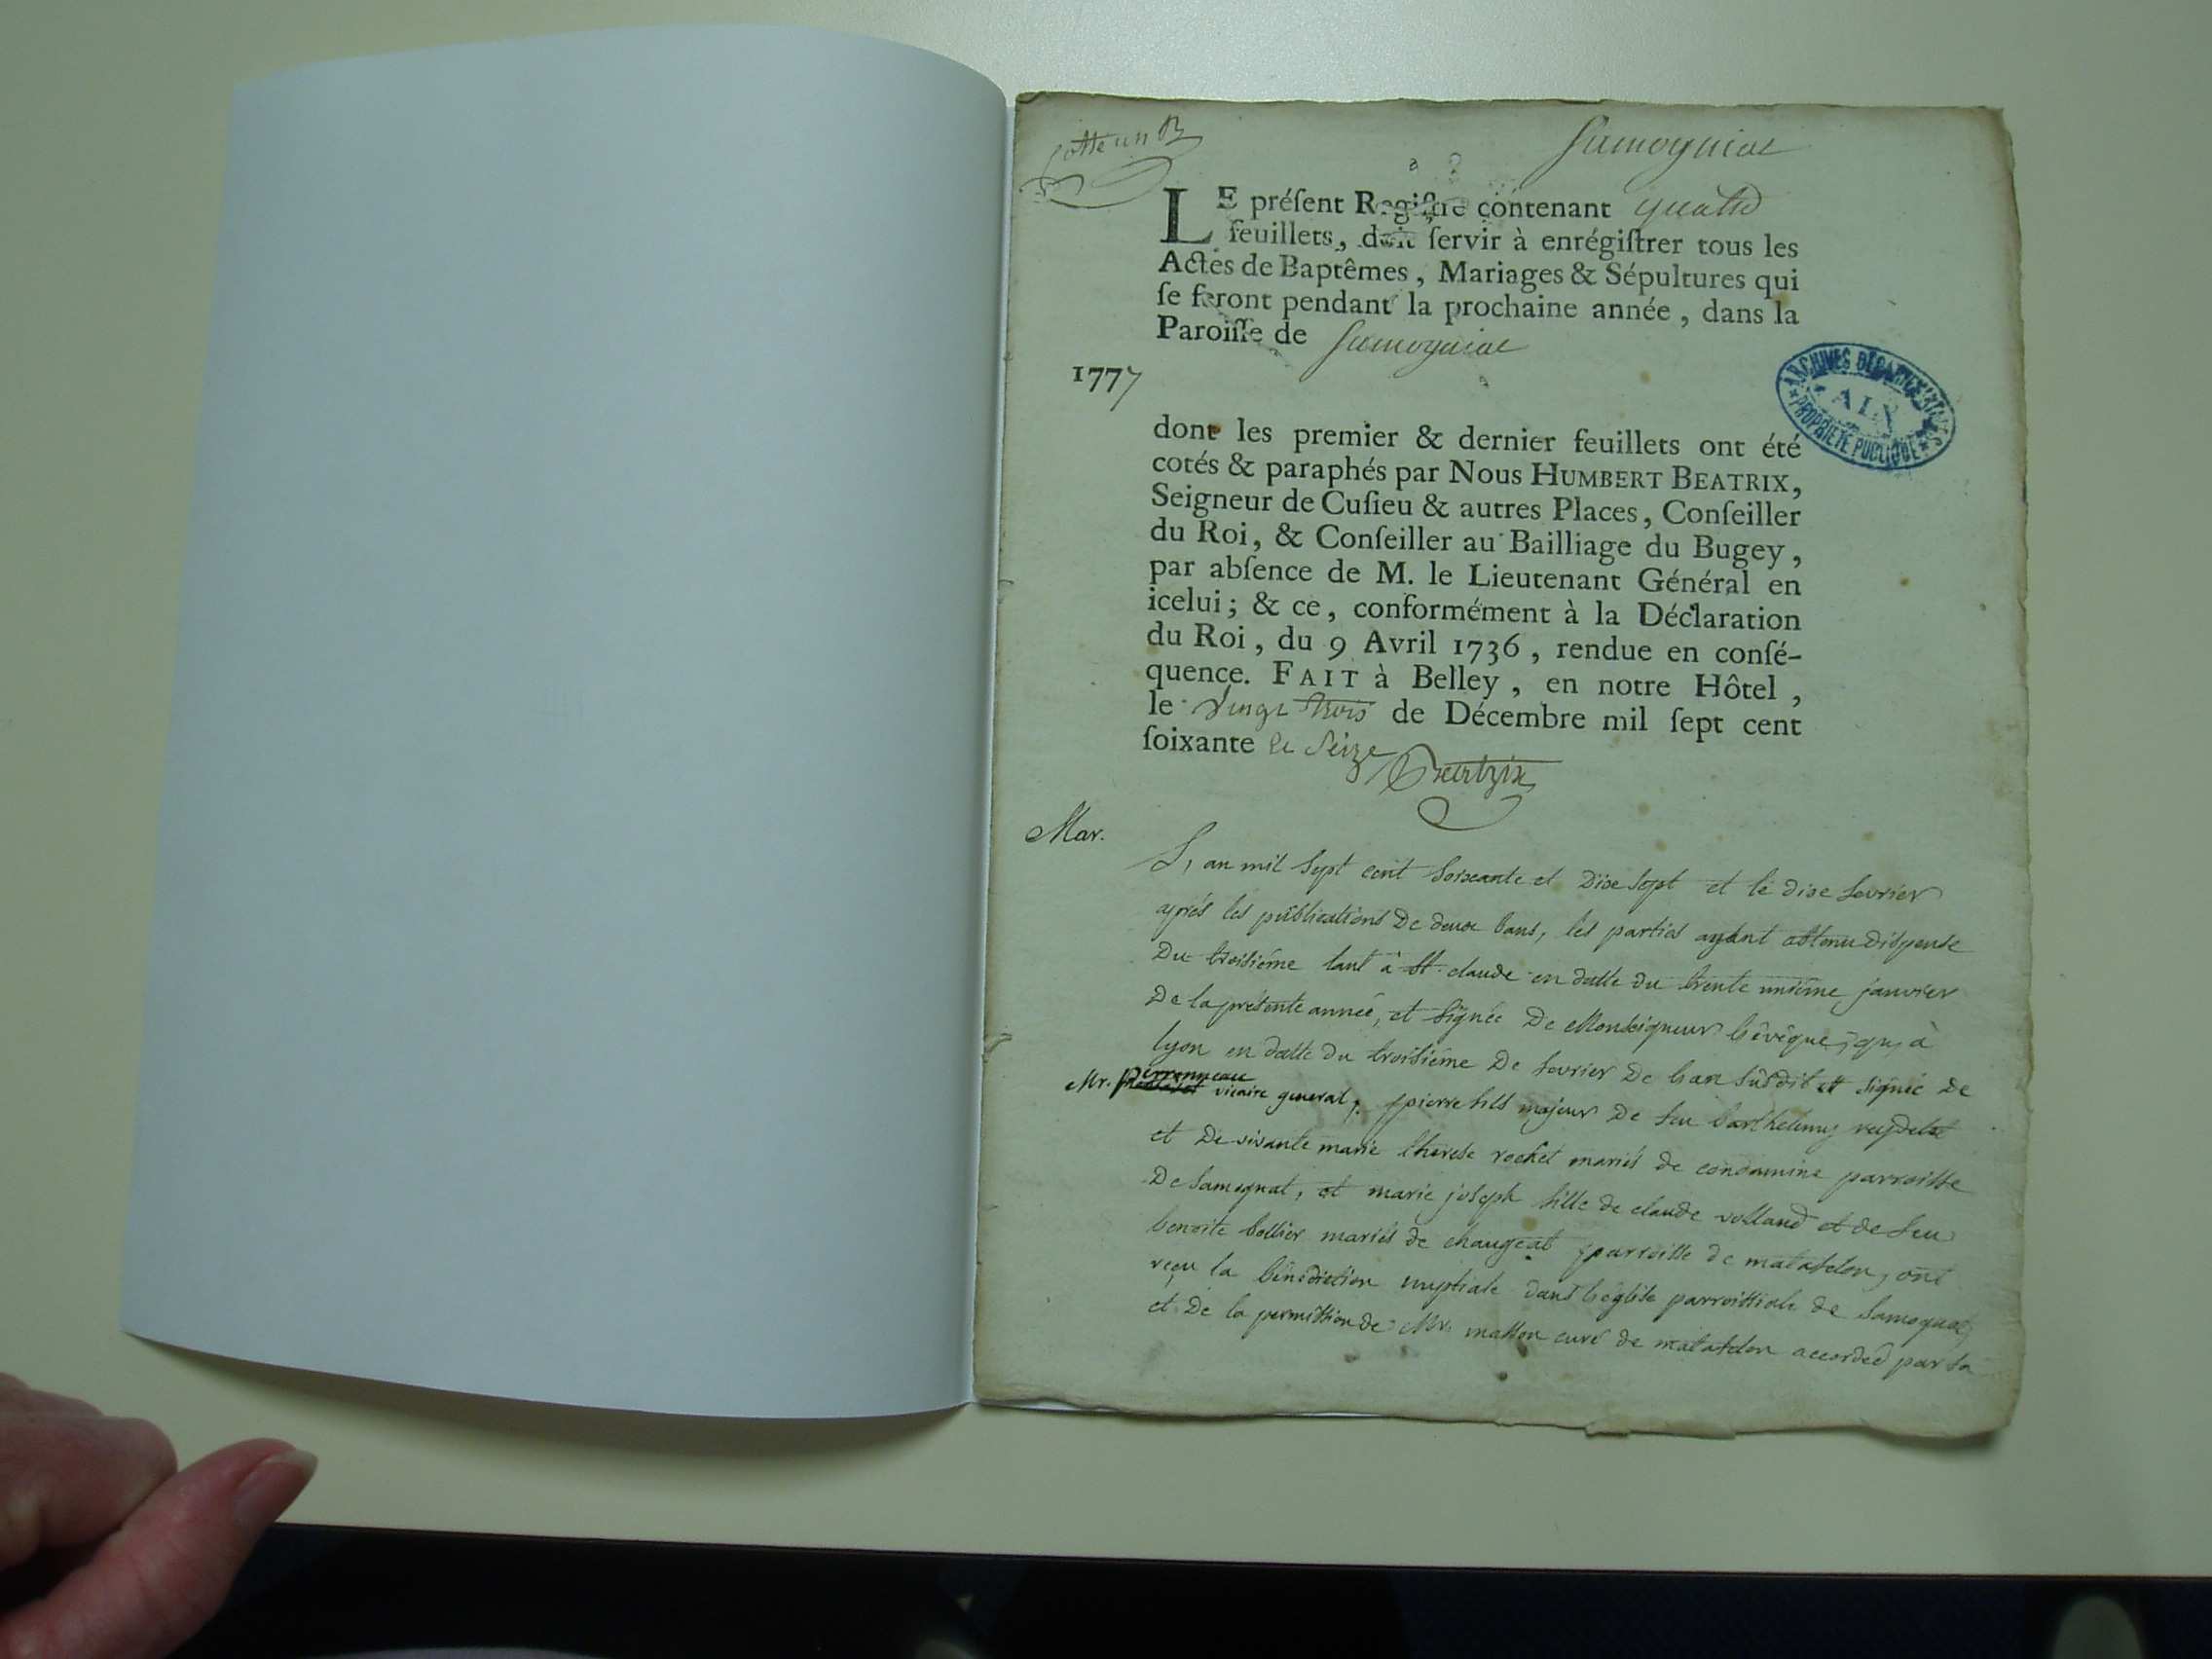 Cotté un B
Samognat
LE préſent Regiſtre contenant quatre
feuillets, doit ſervir à enrégiſtrer tous les
Actes de Baptêmes, Mariages & Sépultures qui
ſe feront pendant la prochaine année, dans la
Paroiſſe de Samognat
1777
ARCHIVES DÉPARTEMENTALES
AIN
PROPRIÉTÉ PUBLIQUE
dont les premier & dernier feuillets ont été
cotés & paraphés par Nous HUMBERT BEATRIX,
Seigneur de Cuſieu & autres Places, Conſeiller
du Roi, & Conſeiller au Bailliage du Bugey,
par abſence de M. le Lieutenant Général en
icelui; & ce, conformément à la Déclaration
du Roi, du 9 Avril 1736, rendue en conſé-
quence. FAIT à Belley, en notre Hôtel,
le vingt trois de Décembre mil ſept cent
ſoixante et seize Beatrix
Mar.
L, an mil sept cent soixante et dixe sept et le dixe fevrier
après les publications de deux bans, les parties ayant obtenu dispense
du troisième tant à st. claude en datte du trente unième janvier
de la présente année, et signée de Monseigneur l'évêque, qu, à
lyon en datte du troisième de fevrier de l'an susdit et signée de
Mr. vicaire general, pierre fils majeur de feu barthelemy reydelet
et de vivante marie therese rochet mariés de condamine parroisse
de samognat, et marie joseph fille de claude volland et de feu
benoite bollier mariés de changeat parroisse de matafelon, ont
reçu la bénédiction nuptiale dans l'église parroissiale de samognat,
et de la permission de Mr. masson curé de matafelon accordée par sa